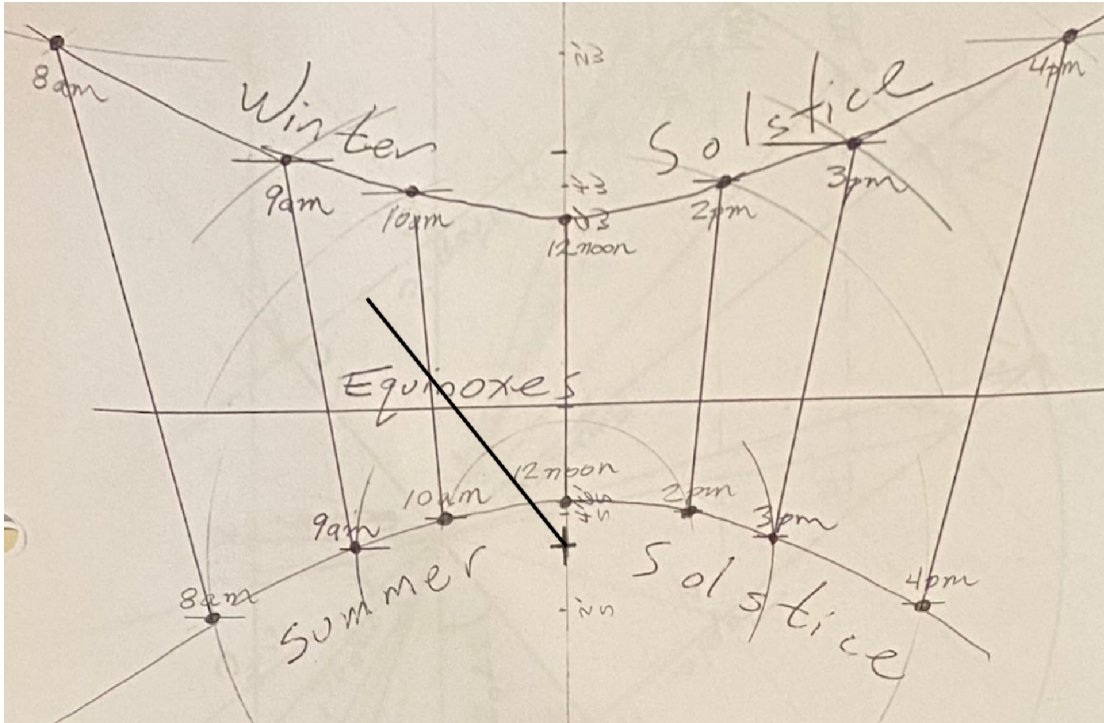 8am
Winter
Solstice
4pm
9am
10am
12 noon
2pm
3pm
Equinoxes
12 noon
10am
2pm
9am
3pm
8am
Summer
Solstice
4pm